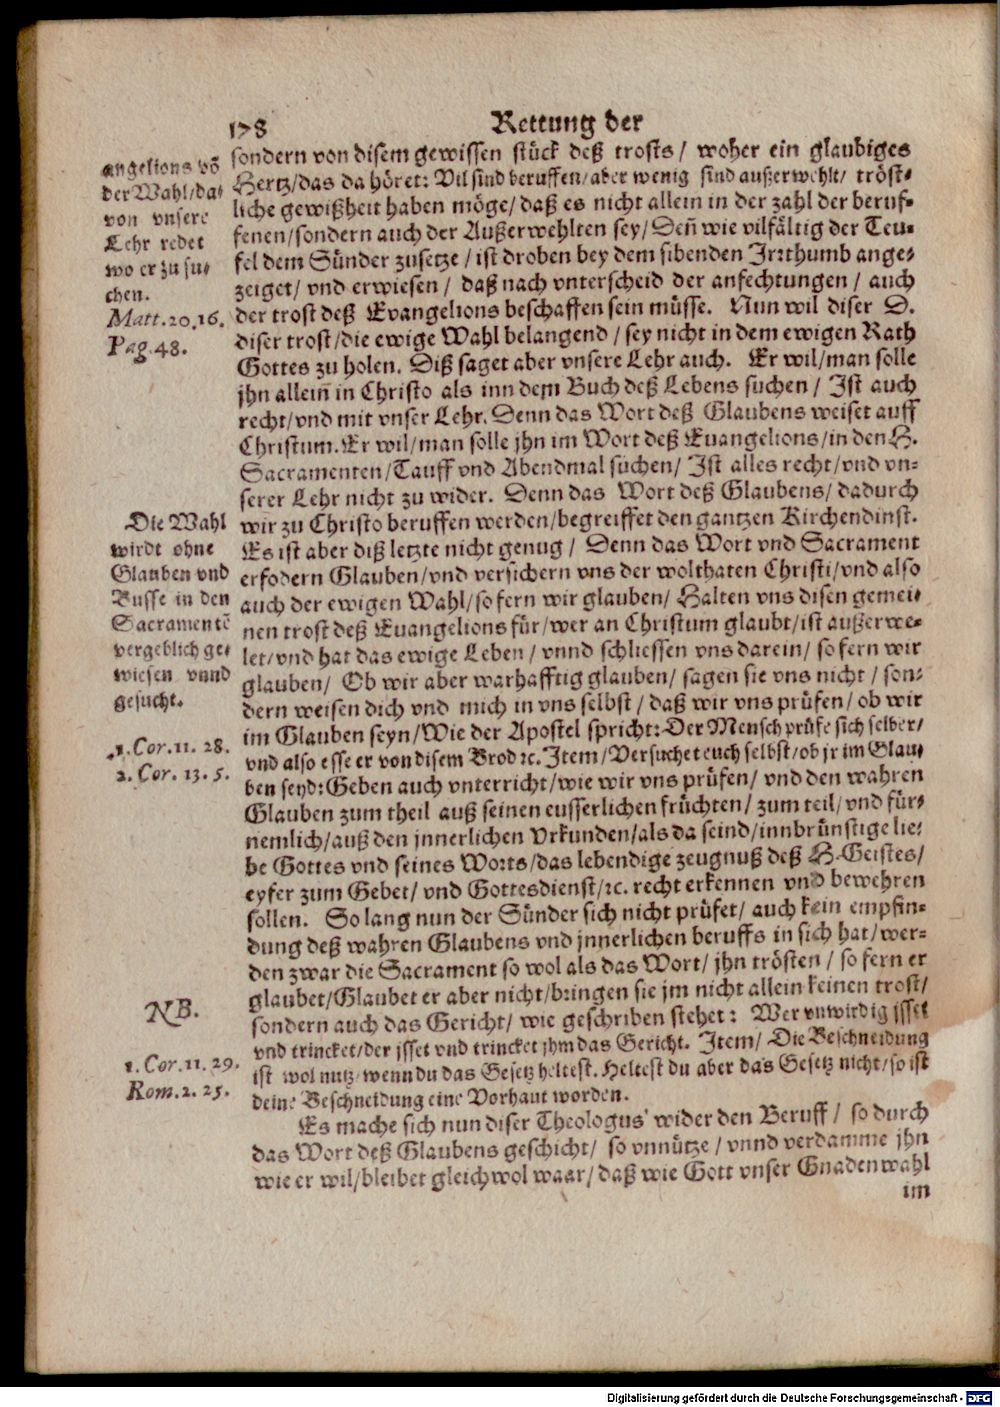 178
Rettung der
angelions võ
der Wahl/da-
von vnsere
Lehr redet
wo er zu su-
chen.
Matt.20.16.
Pag.48.
sondern von disem gewissen stück deß trosts/ woher ein glaubiges
Hertz/das da höret: Vil sind beruffen/aber wenig sind außerwehlt/ tröst-
liche gewißheit haben möge/ daß es nicht allein in der zahl der beruf-
fenen/sondern auch der Außerwehlten sey/ Deñ wie vilfältig der Teu-
fel dem Sünder zusetze/ ist droben bey dem sibenden Irrthumb ange-
zeiget/ vnd erwiesen/ daß nach vnterscheid der anfechtungen/ auch
der trost deß Evangelions beschaffen sein müsse. Nun wil diser D.
diser trost/die ewige Wahl belangend/ sey nicht in dem ewigen Rath
Gottes zu holen. Diß saget aber vnsere Lehr auch. Er wil/man solle
jhn alleiñ in Christo als inn dem Buch deß Lebens suchen/ Ist auch
recht/vnd mit vnser Lehr. Denn das Wort deß Glaubens weiset auff
Christum. Er wil/man solle jhn im Wort deß Euangelions/in den H.
Sacramenten/Tauff vnd Abendmal suchen/ Ist alles recht/vnd vn-
serer Lehr nicht zu wider. Denn das Wort deß Glaubens/ dadurch
wir zu Christo beruffen werden/begreiffet den gantzen Kirchendinst.
Es ist aber diß letzte nicht genug/ Denn das Wort vnd Sacrament
erfodern Glauben/vnd versichern vns der wolthaten Christi/vnd also
auch der ewigen Wahl/so fern wir glauben/ Halten vns disen gemei-
nen trost deß Euangelions für/wer an Christum glaubt/ist außerwe-
let/vnd hat das ewige Leben/ vnnd schliessen vns darein/ so fern wir
glauben/ Ob wir aber warhafftig glauben/ sagen sie vns nicht/ son-
dern weisen dich vnd mich in vns selbst/ daß wir vns prüfen/ ob wir
im Glauben seyn/Wie der Apostel spricht: Der Mensch prüfe sich selber/
vnd also esse er von disem Brod ꝛc. Item/Versuchet euch selbst/ob jr im Glau-
ben seyd: Geben auch vnterricht/wie wir vns prüfen/ vnd den wahren
Glauben zum theil auß seinen eusserlichen früchten/ zum teil/vnd für-
nemlich/auß den jnnerlichen Vrkunden/als da seind/innbrünstige lie-
be Gottes vnd seines Worts/das lebendige zeugnuß deß H. Geistes/
eyfer zum Gebet/ vnd Gottesdienst/ꝛc. recht erkennen vnd bewehren
sollen. So lang nun der Sünder sich nicht prüfet/ auch kein empfin-
dung deß wahren Glaubens vnd jnnerlichen beruffs in sich hat/wer-
den zwar die Sacrament so wol als das Wort/ jhn trösten/ so fern er
glaubet/Glaubet er aber nicht/bringen sie jm nicht allein keinen trost/
sondern auch das Gericht/ wie geschriben stehet: Wer vnwirdig jsset
vnd trincket/der jsset vnd trincket jhm das Gericht. Item/ Die Beschneidung
ist wol nutz/wenn du das Gesetz heltest. Heltest du aber das Gesetz nicht/so ist
deine Beschneidung eine Vorhaut worden.
Es mache sich nun diser Theologus wider den Beruff/ so durch
das Wort deß Glaubens geschicht/ so vnnütze/ vnnd verdamme jhn
wie er wil/bleibet gleichwol waar/ daß wie Gott vnser Gnadenwahl
im
Die Wahl
wirdt ohne
Glauben vnd
Busse in den
Sacramentē
vergeblich ge-
wiesen vnnd
gesucht.
1. Cor. 11. 28.
2. Cor. 13. 5.
NB.
1. Cor. 11. 29.
Rom. 2. 25.
Digitalisierung gefördert durch die Deutsche Forschungsgemeinschaft - DFG